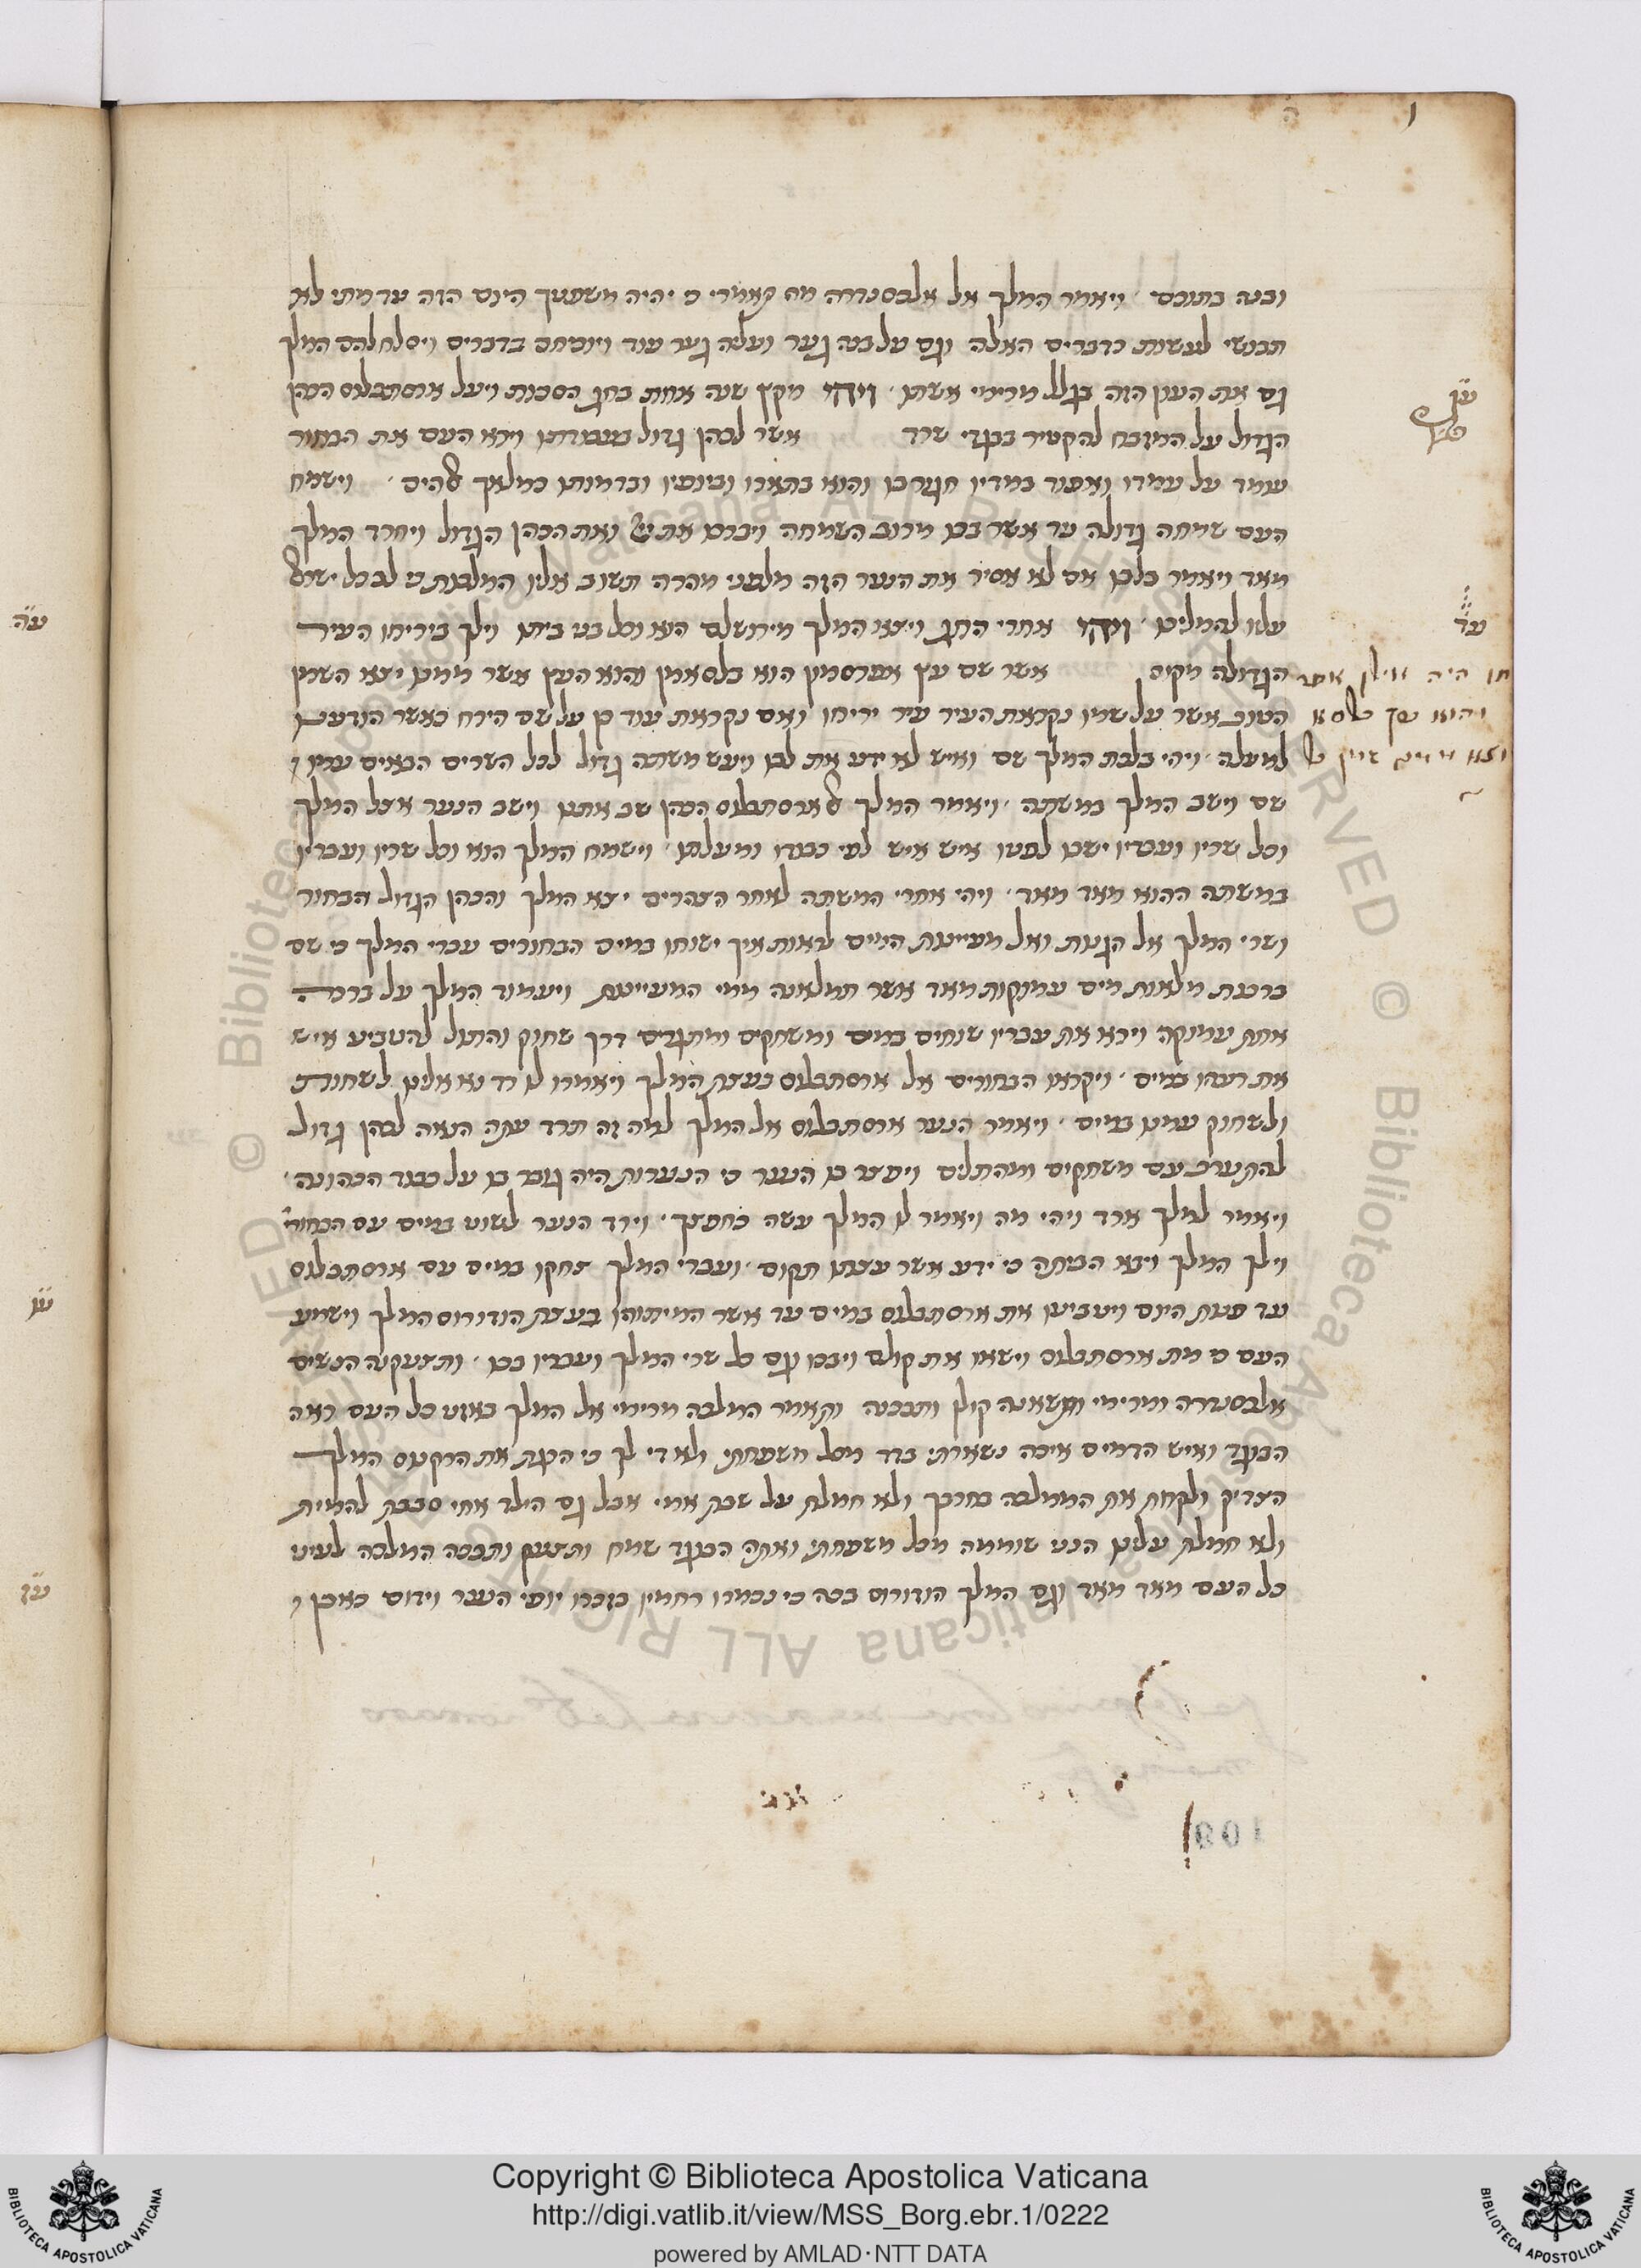 ובנה בתוכם ויאמר המלך אל אלכסנדרה מה תאמרי כי יהיה משפטך היום הזה עד מתי לא
תבושי לעשות כדברים האלה וגם על בנה גער ועליה גער עוד ויוכיחם בדברים ויסלח להם המלך
גם את העון הזה בגלל מרימי אשתו ויהי מקץ שנה אחת בחג הסכות ויעל ארסתבלוס הכהן
הגדול על המזבח להקטיר בבגדי שרד אשר לכהן גדול וירא העם את הבחור
עומד על עמדו ואפוד במדיו חגרו והוא בתארו וביופיו ובדמותו כמלאך אלהים וישמח
העם שמחה גדולה עד אשר בכו מרוב השמחה ויברכו את ואת הכהן הגדול ויחרד המלך
מאד ויאמר בלבו אם לא אסיר את הנער הזה מלפני מהרה תשוב אליו המלכות כי לב כל ישראל
עליו להמליכו ויהי אחרי החג ויצא המלך מירושלם הוא וכל בני ביתו וילך ביריחו העיר
הגדולה מקום אשר שם עץ אפרסמון הוא בלסאמו והוא העץ אשר ממנו יצא השמן
הטוב אשר על שמו נקראת העיר עיר יריחו ואם נקראת עוד כן על שם הירח כאשר הודענו
למעלה ויהי בלכת המלך שם ואיש לא ידע את לבו ויעש משתה גדול לכל השרים הבאים עמו
שם וישב המלך במשתה ויאמר המלך לארסתבלוס הכהן שב אתנו וישב הנער אצל המלך
וכל שריו ועבדיו ישבו לפניו איש איש לפי כבודו ומעלתו וישמח המלך הוא וכל שריו ועבדיו
במשתה ההוא מאד מאד ויהי אחרי המשתה לאחר הצהרים יצא המלך והכהן הגדול הבחור
ושרי המלך אל הגנות ואל מעיינות המים לראות איך ישוחו במים הבחורים עבדי המלך כי שם
ברכות מלאות מים עמוקות מאד אשר תמלאנה ממי המעיינות ויעמוד המלך על ברכה
אחת עמוקה וירא את עבדיו שוחים במים ומשחקים ומתגרים דרך שחוק והתול להטביע איש
את רעהו במים ויקראו הבחורים אל ארסתבלוס בעצת המלך ויאמרו לו רד נא אלינו לשחות
ולשחוק עמנו במים ויאמר הנער ארסתבלוס אל המלך למה זה תרד עתה הנאה לכהן גדול
להתערב עם משחקים ומהתלים ויפצר בו הנער כי הנערות היה גובר בו על כבוד הכהונה
ויאמר למלך ארד ויהי מה ויאמר לו המלך עשה כחפצך וירד הנער לשוט במים עם הבחורי
וילך המלך ויצא הביתה כי ידע אשר עצתו תקום ועבדי המלך צחקו במים עם ארסתבלוס
עד פנות היום ויטביעו את ארסתבלוס במים עד אשר המיתוהו בעצת הורודוס המלך וישמע
העם כי מת ארסתבלוס וישאו את קולם ויבכו וגם כל שרי המלך ועבדיו בכו ותצעקנה הנשים
אלכסנדרה ומרימי ותשאנה קולן ותבכנה ותאמר המלכה מרימי אל המלך באזני כל העם ראה
הבוגד ואיש הדמים איכה נשארתי בדד מכל משפחתי ולא די לך כי הרגת את הורקנוס המלך
הצדיק ולקחת את הממלכה בחרבך ולא חמלת על שבת אמי אבל גם הילד אחי סבבת להמית
ולא חמלת עלינו הנני שוממה מכל משפחתי ואתה הבוגד שמח ותצעק ותבכה המלכה לעיני
כל העם מאד מאד וגם המלך הורודוס בכה כי נכמרו רחמיו בזכרו יופי הנער וידום כאבן
עג
עד
והוא עץ
עה
עו
עז
108
Copyright © Biblioteca Apostolica Vaticana
http://digi.vatlib.it/view/MSS_Borg.ebr.1/0222
powered by AMLAD·NTT DATA
BIBLIOTECA APOSTOLICA VATICANA
BIBLIOTECA APOSTOLICA VATICANA